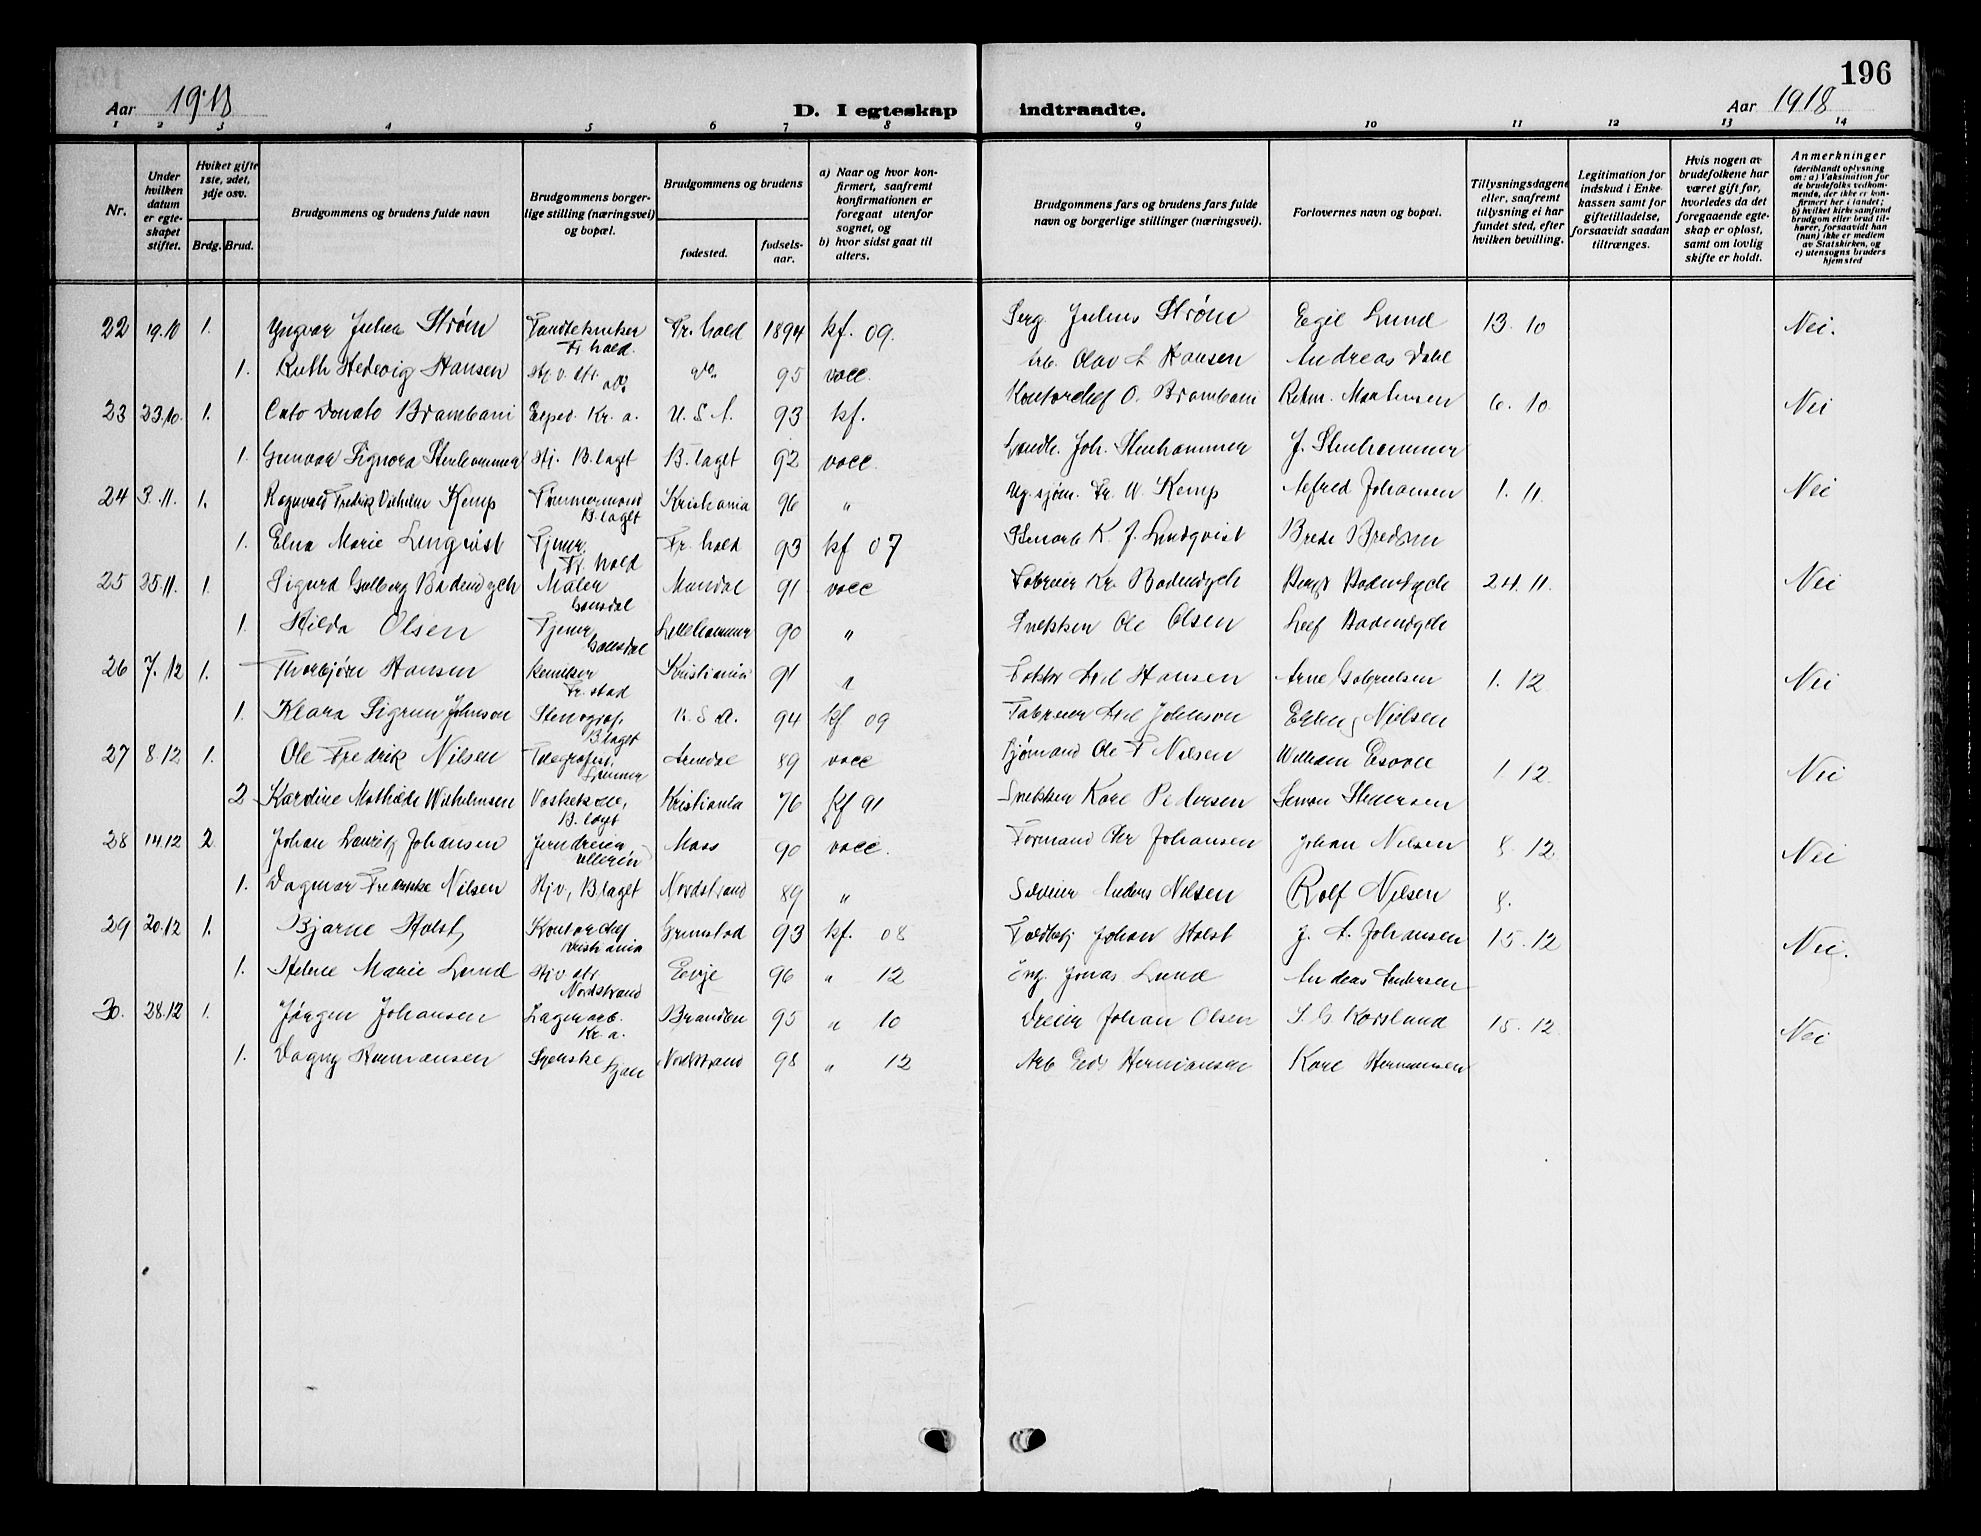 196
Aar 1918 D. I egteskap indtraadte. Aar 1918
1 2 3 4 5 6 7 8 9 10 11 12 13 14
Nr.
Under hvilken datum er egteskapet stiftet.
Hviket gifte 1ste, 2det, 3dje osv.
Brdg. Brud.
Brudgommens og brudens fulde navn
Brudgommens borgerlige stilling (næringsvei) og bopæl.
Brudgommens og brudens
fødested.
fødselsaar.
a) Naar og hvor konfirmert, saafremt konfirmationen er foregaat utenfor sognet, og
b) hvor sidst gaat til alters.
Brudgommens fars og brudens fars fulde navn og borgerlige stillinger (næringsvei).
Forlovernes navn og bopæl.
Tillysningsdagene eller, saafremt tillysning ei har fundet sted, efter hvilken bevilling.
Legitimation for indskud i Enkekassen samt for giftetilladelse, forsaavidt saadan tiltrænges.
Hvis nogen av brudefolkene har været gift før, hvorledes da det foregaaende egteskap er opløst, samt om lovlig skifte er holdt.
Anmerkninger (deriblandt oplysning om: a) Vaksination for de brudefolks vedkommende, der ikke er konfirmert her i landet; b) hvilket kirkesamfund brudgom eller brud tilhører, forsaavidt han (hun) ikke er medlem av Statskirken, og c) utensogns bruders hjemsted
22 19.10 1. Yngvar Julius Strøm Tandtekniker Fr.hald 1894 kf. 09. Serg. Julius Strøm Egil Lund 13. 10 Nei.
Fr hald.
1. Ruth Hedevig Hansen do 95 vacc. Arb. Olav A Hansen Andreas Dahl
23 23.10. 1. Cato Donato Brambani Exped. Kr. a. U. S. A. 93 kf. Kontorchef O. Brambani Martinsen 6. 10. Nei
1. Gunvor Signora Stenhammer Hj. B. laget B. laget 92 vacc. Landh. Joh. Stenhammer J. Stenhammer
24 3. 11. 1. Ragnvald Fredrik Vilhelm Kemp Tømmermand Kristiania 96 " Fr. W. Kemp Alfred Johansen 1. 11. Nei
B. laget
1. Elna Marie Lingvist Tjener Fr. hald 93 kf 07 Stenarb K. J. Lundqvist Brede Bredsen
Fr. hald
25 25 11. 1. Sigurd Badendyck Maler Mandal 91 vacc Kr. Badendyck Badendyck 24. 11. Nei
1. Hilda Olsen Tjener Lillehammer 90 " Snekker Ole Olsen Leif Badendyck
26 7. 12 1. Thorbjørn Hansen Kemiker Kristiania 91 " Hansen Arne Gabrielsen 1. 12 Nei
Fr. stad
1. Klara Sigrun Johnson Stenograf. U. S. A. 94 kf 09 Johnson Erling Nielsen
B. laget
27 8. 12 1. Ole Fredrik Nilsen Telegrafist, Arendal 89 vacc Sjømand Ole F Nilsen William 1 12 Nei
2 Kardine Mathilde Wilhelmsen Kristiania 76 kf 91 Snekker Karl Pedersen
B. laget
28 14.12 2 Johan Lauritz Johansen Jerndreier Moss 90 vacc. Formand Chr Johansen Johan Nilsen 8. 12 Nei
1. Dagmar Fredrikke Nilsen Hjv, B laget Nordstrand 89 " Anders Nilsen Rolf Nilsen 8.
29 20.12 1. Bjarne Holst, Kontorchef Grimstad 93 kf. 08 Johan Holst J. A. Johansen 15. 12 Nei.
Kristiania
1. Helene Marie Lund Evje 96 " 12 Ing. Jonas Lund Andreas Andersen
Nordstrand
30. 28.12 1. Jørgen Johansen Lagerarb. Brandbu 95 " 10 Dreier Johan Olsen 15. 12 Nei
Kr. a.
1. Dagny Hermansen Nordstrand 98 " 12 Arb Hermansen Karl Hermansen
Ljan